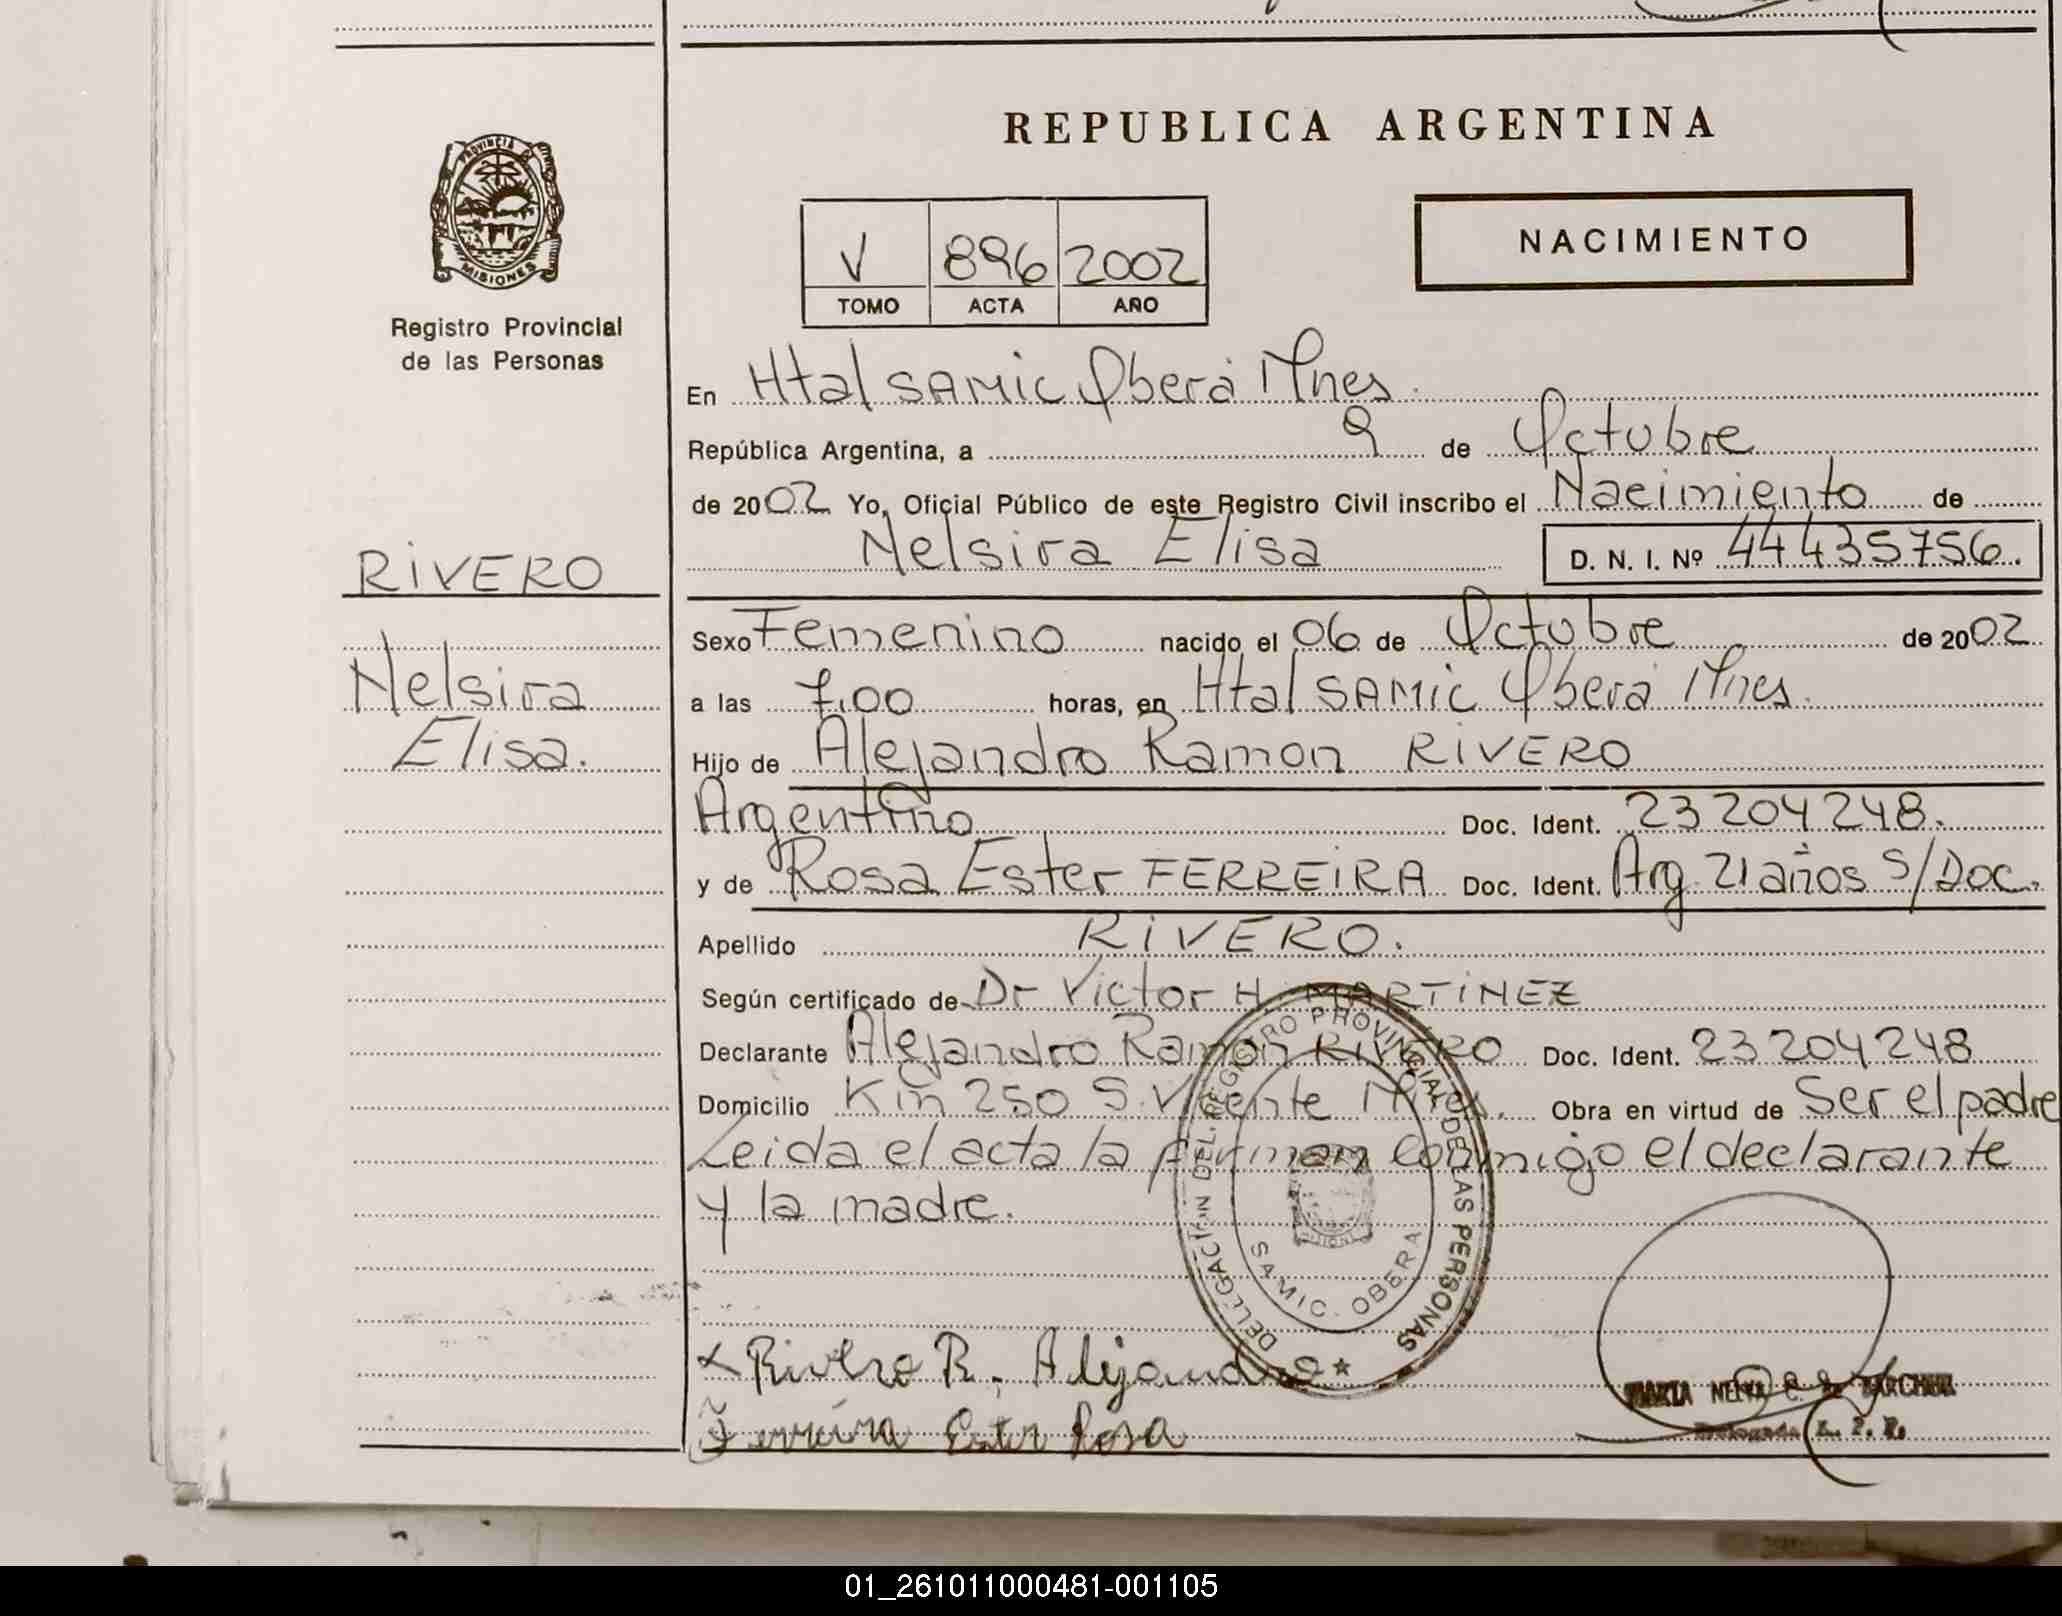 REPUBLICA ARGENTINA
PROVINCIA D
MISIONES
Registro Provincial
de las Personas
V 896 2002
TOMO ACTA AÑO
NACIMIENTO
En Htal SAMIC Oberá Mnes.
República Argentina, a 9 de Octubre
de 2002 Yo, Oficial Público de este Registro Civil inscribo el Nacimiento de
Nelsira Elisa D. N. I. Nº 44435756.
RIVERO
Nelsira
Elisa.
Sexo Femenino nacido el 06 de Octubre de 2002
a las 7.00 horas, en Htal SAMIC Oberá Mnes.
Hijo de Alejandro Ramon RIVERO
Argentino Doc. Ident. 23204248.
y de Rosa Ester FERREIRA Doc. Ident. Arg. 21 años S/Doc.
Apellido RIVERO.
Según certificado de Dr Victor H. MARTINEZ
Declarante Alejandro Ramon RIVERO Doc. Ident. 23204248
Domicilio Km 250 S. Vicente Mnes. Obra en virtud de Ser el padre
Leida el acta la firman conmigo el declarante
y la madre.
DELEGACION DEL REGISTRO PROVINCIAL DE LAS PERSONAS
MISIONES
SAMIC. OBERA
x Rivero R. Alejandro
Ferreira Ester Rosa
MARIA
01_261011000481-001105